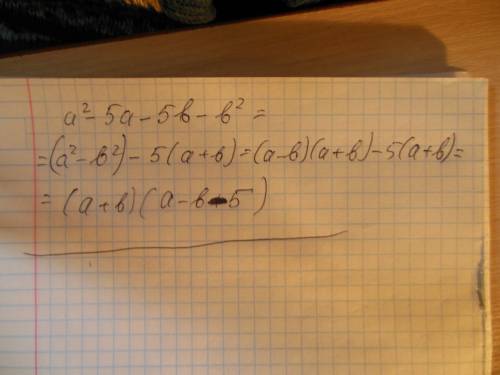 a² - 5a - 5b - b² =
= (a² - b²) - 5(a + b) = (a - b)(a + b) - 5(a + b) =
= (a + b)(a - b - 5)